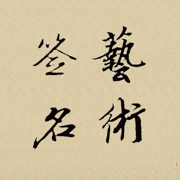 藝術
签名